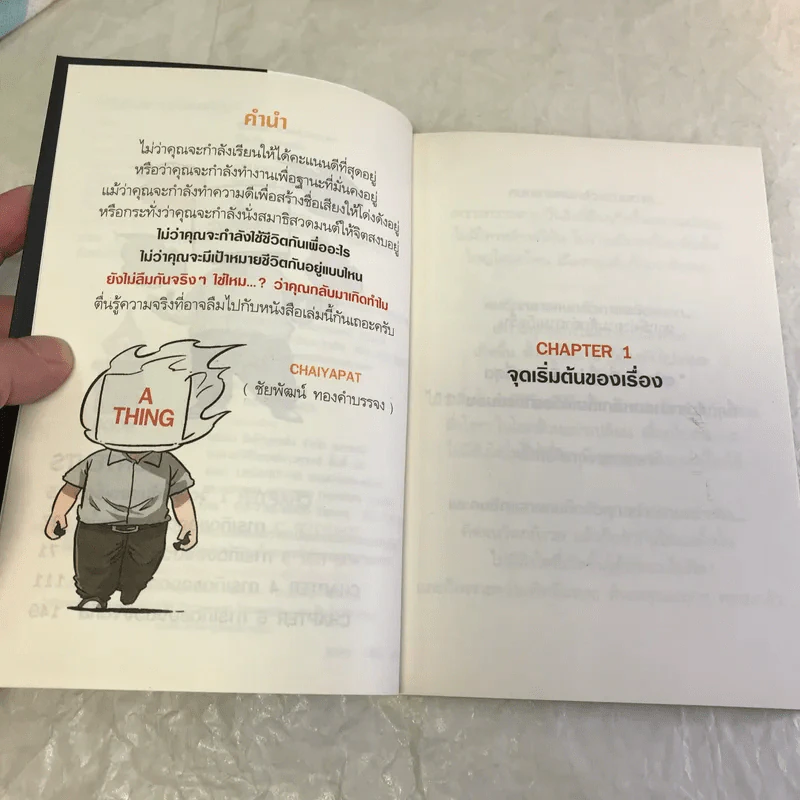 คำนำ
ไม่ว่าคุณจะกำลังเรียนให้ได้คะแนนดีที่สุดอยู่
หรือว่าคุณจะกำลังทำงานเพื่อฐานะที่มั่นคงอยู่
แม้ว่าคุณจะกำลังทำความดีเพื่อสร้างชื่อเสียงให้โด่งดังอยู่
หรือกระทั่งว่าคุณจะกำลังนั่งสมาธิสวดมนต์ให้จิตสงบอยู่
ไม่ว่าคุณจะกำลังใช้ชีวิตกันเพื่ออะไร
ไม่ว่าคุณจะมีเป้าหมายชีวิตกันอยู่แบบไหน
ยังไม่ลืมกันจริงๆ ใช่ไหม...? ว่าคุณกลับมาเกิดทำไม
ตื่นรู้ความจริงที่อาจลืมไปกับหนังสือเล่มนี้กันเถอะครับ
CHAIYAPAT
( ชัยพัฒน์ ทองคำบรรจง )
A
THING
CHAPTER 1
จุดเริ่มต้นของเรื่อง